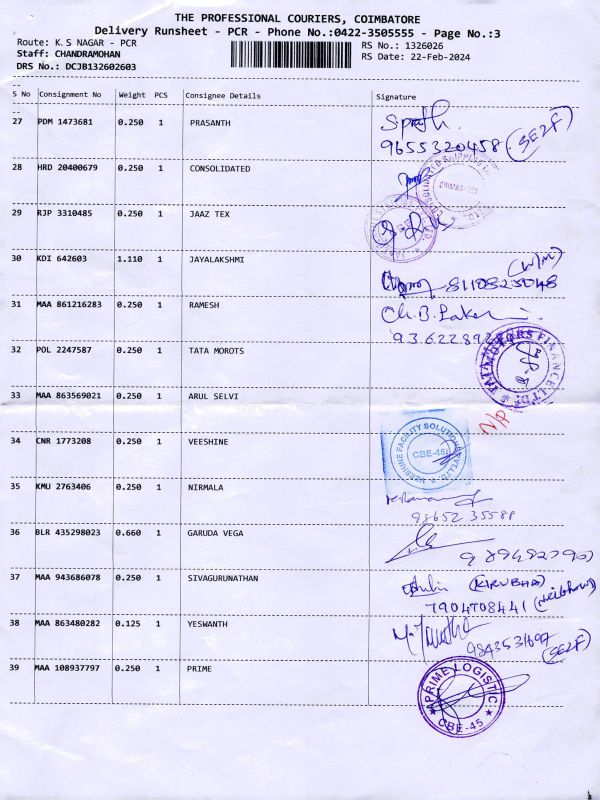 THE PROFESSIONAL COURIERS, COIMBATORE
Delivery Runsheet - PCR - Phone No.:0422-3505555 - Page No.:3
Route: K.S NAGAR - PCR
RS No.: 1326026
Staff: CHANDRAMOHAN
RS Date: 22-Feb-2024
DRS No.: DCJB132602603
S No Consignment No Weight PCS Consignee Details Signature
27 PDM 1473681 0.250 1 PRASANTH
9655320458 (SELF)
28 HRD 20400679 0.250 1 CONSOLIDATED
29 RJP 3310485 0.250 1 JAAZ TEX
30 KDI 642603 1.110 1 JAYALAKSHMI
(W/M)
8110825048
31 MAA 861216283 0.250 1 RAMESH
Ch.B.
9362289
32 POL 2247587 0.250 1 TATA MOROTS
TATA MOTORS FINANCE LTD
33 MAA 863569021 0.250 1 ARUL SELVI
N/P
34 CNR 1773208 0.250 1 VEESHINE
VEESHINE FACILITY SOLUTIONS PVT LTD
CBE-45
35 KMU 2763406 0.250 1 NIRMALA
98652 35588
36 BLR 435298023 0.660 1 GARUDA VEGA
37 MAA 943686078 0.250 1 SIVAGURUNATHAN
(KIRUBHA)
7904708441
38 MAA 863480282 0.125 1 YESWANTH
(SELF)
39 MAA 108937797 0.250 1 PRIME
PRIME LOGISTIC
CBE-45